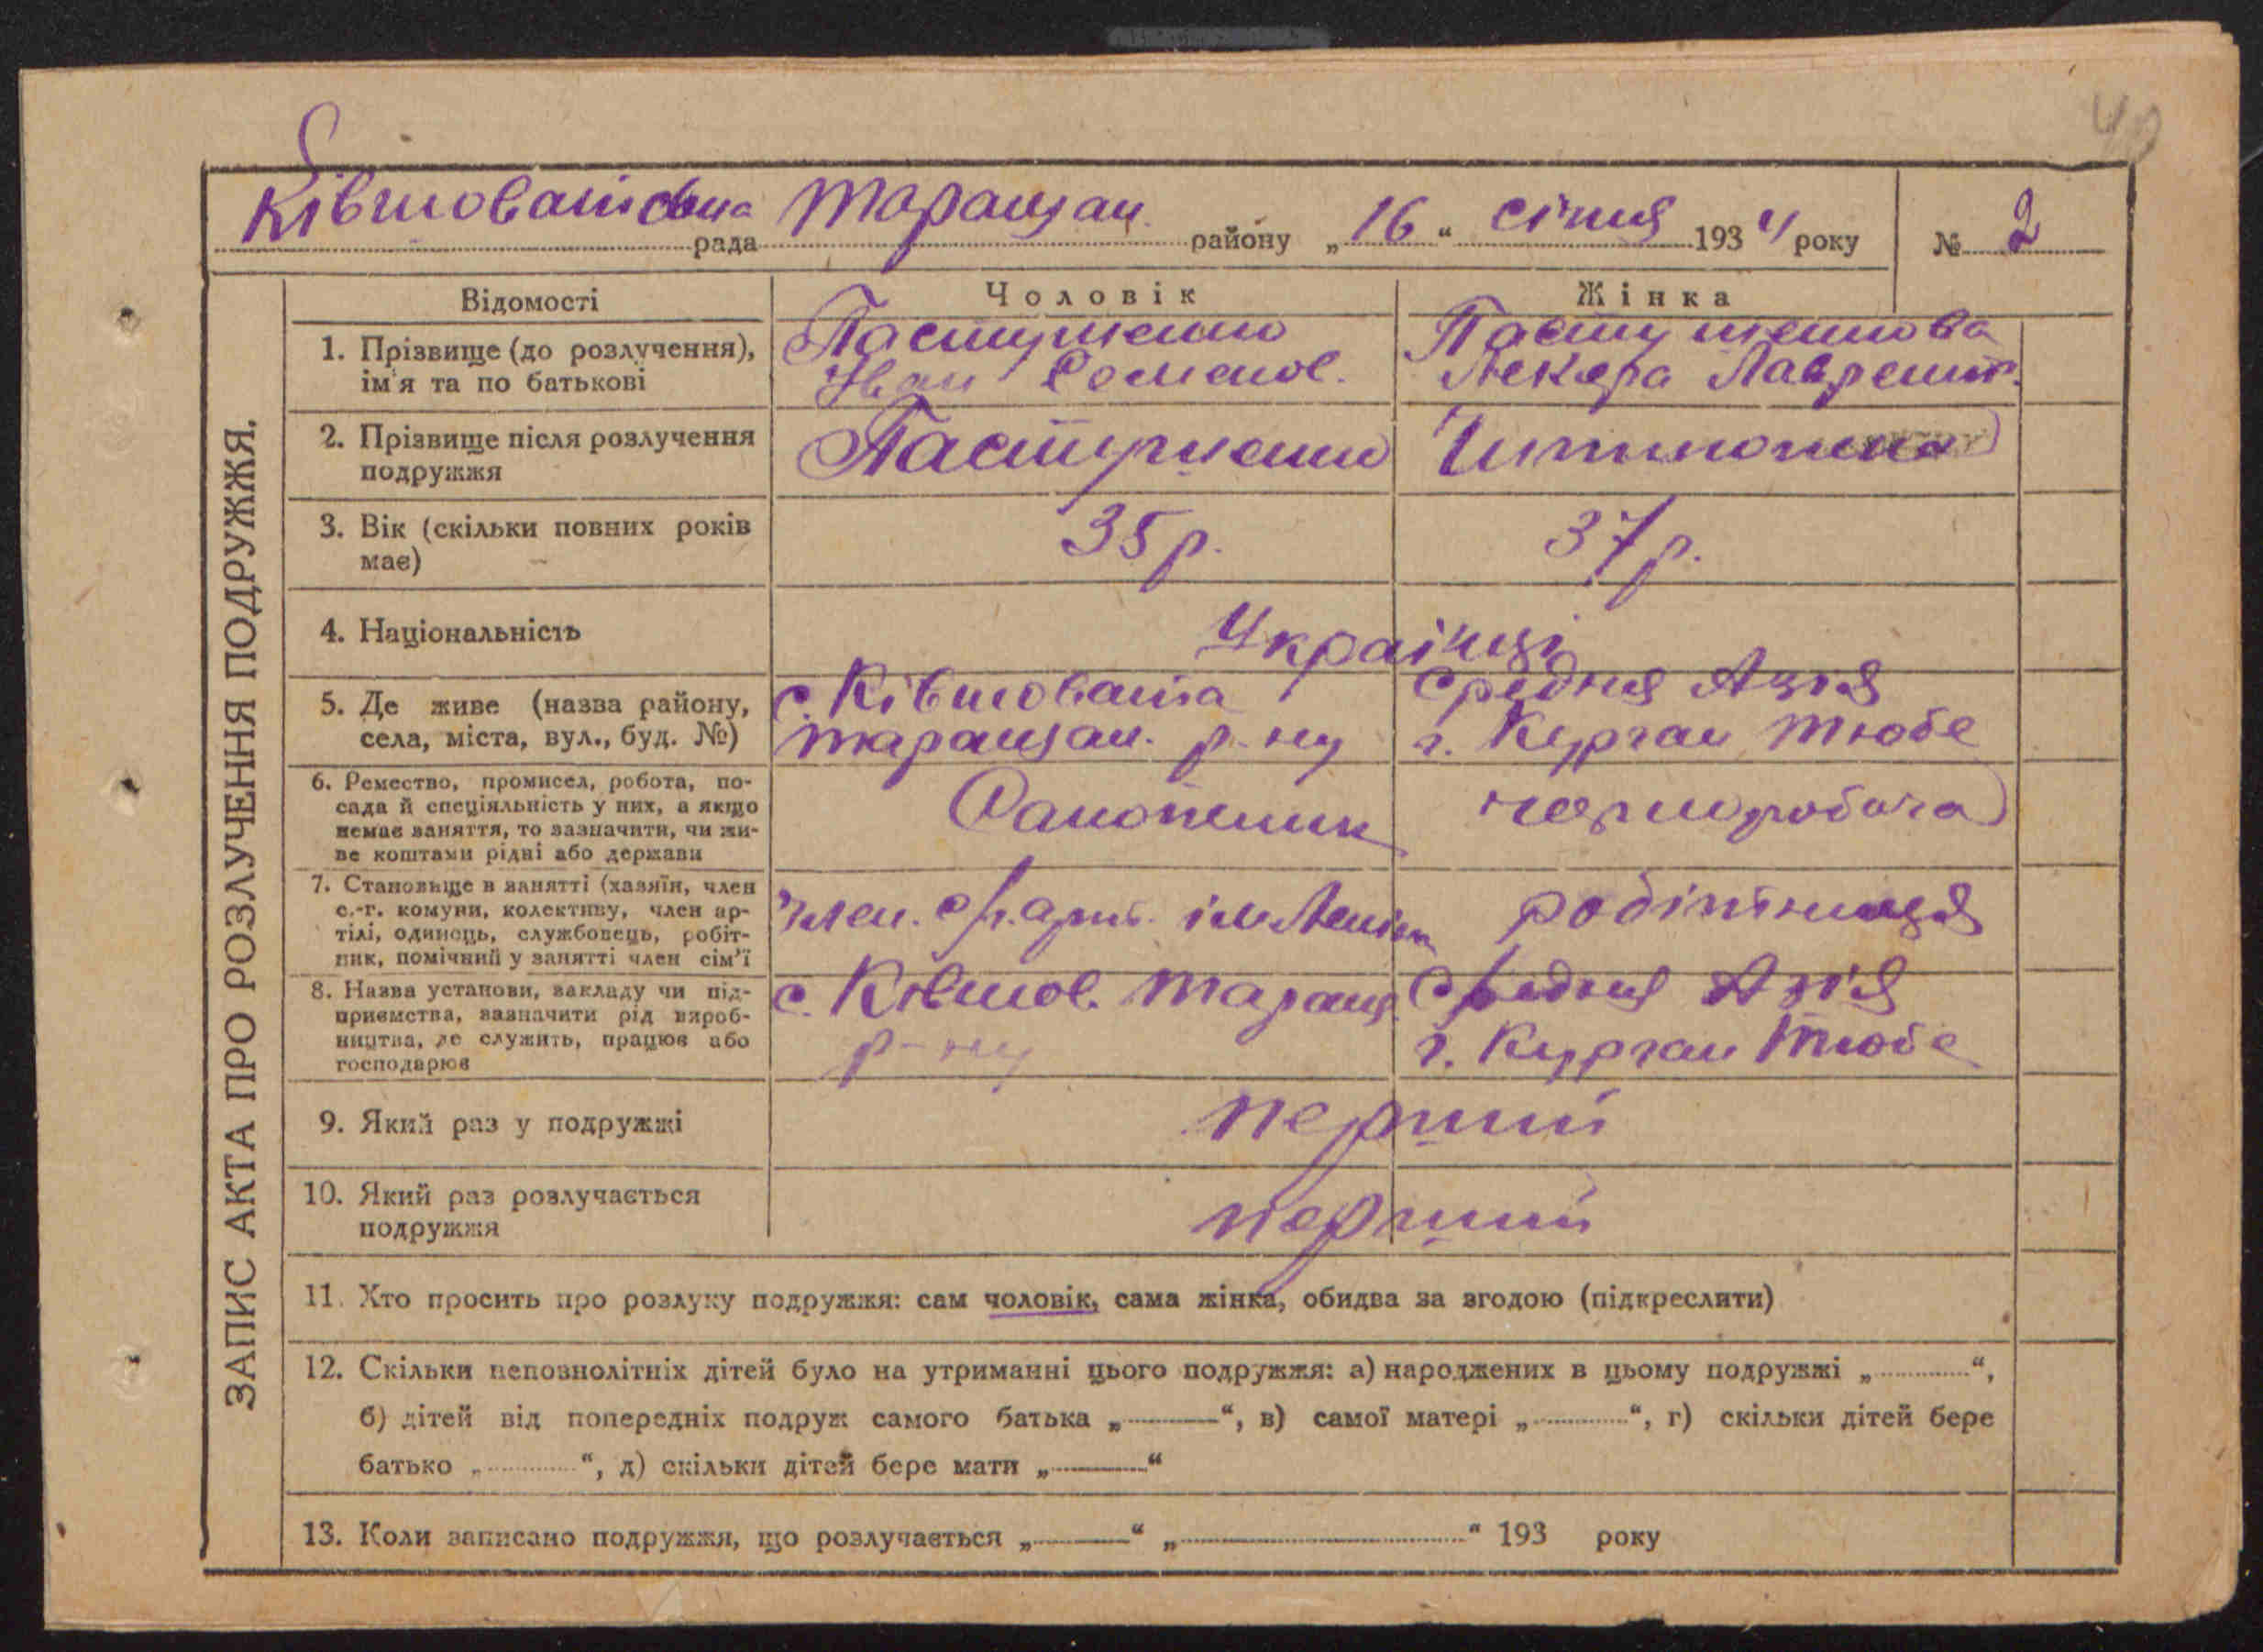 Ківшоватська рада Таращан. району „16“ січня 1934 року № 2
ЗАПИС АКТА ПРО РОЗЛУЧЕННЯ ПОДРУЖЖЯ.
Відомості Чоловік Жінка
1. Прізвище (до розлучення), ім'я та по батькові
Пастушенко
Іван Семенов.
Пастушенкова
Лаврент.
2. Прізвище після розлучення подружжя
Пастушенко
3. Вік (скільки повних років має)
35 р. 37 р.
4. Національність
Українці
5. Де живе (назва району, села, міста, вул., буд. №)
с. Ківшовата
таращан. р-ну
Средня Азія
г. Курган Тюбе
6. Ремество, промисел, робота, по-
сада й спеціяльність у них, а якщо
немає заняття, то зазначити, чи жи-
ве коштами рідні або держави
чорноробоча
7. Становище в занятті (хазяїн, член
с.-г. комуни, колективу, член ар-
тілі, одинець, службовець, робіт-
ник, помічний у занятті член сім'ї
член. с/г. арт. ім Леніна
робітниця
8. Назва установи, закладу чи під-
приємства, зазначити рід вироб-
ництва, де служить, працює або
господарює
с. Ківшов. Таращ.
р-ну
Средня Азія
г. Курган Тюбе
9. Який раз у подружжі
перший
10. Який раз розлучається
подружжя
перший
11. Хто просить про розлуку подружжя: сам чоловік, сама жінка, обидва за згодою (підкреслити)
12. Скільки неповнолітніх дітей було на утриманні цього подружжя: а) народжених в цьому подружжі „ “,
б) дітей від попередніх подруж самого батька „ “, в) самої матері „ “, г) скільки дітей бере
батько „ “, д) скільки дітей бере мати „ “
13. Коли записано подружжя, що розлучається „ “ „ “ 193 року